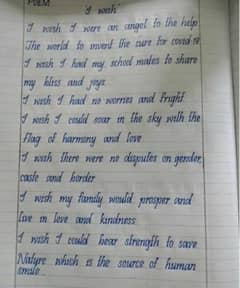 POEM
"I wish"
I wish I were an angel to the help
The world to invent the cure for covid-19
I wish I had my school mates to share
my bliss and joys.
I wish I had no worries and fright
I wish I could soar in the sky with the
flag of harmony and love
I wish there were no disputes on gender,
caste and border
I wish my family would prosper and
live in love and kindness
I wish I could bear strength to save
Nature which is the source of human
smile...